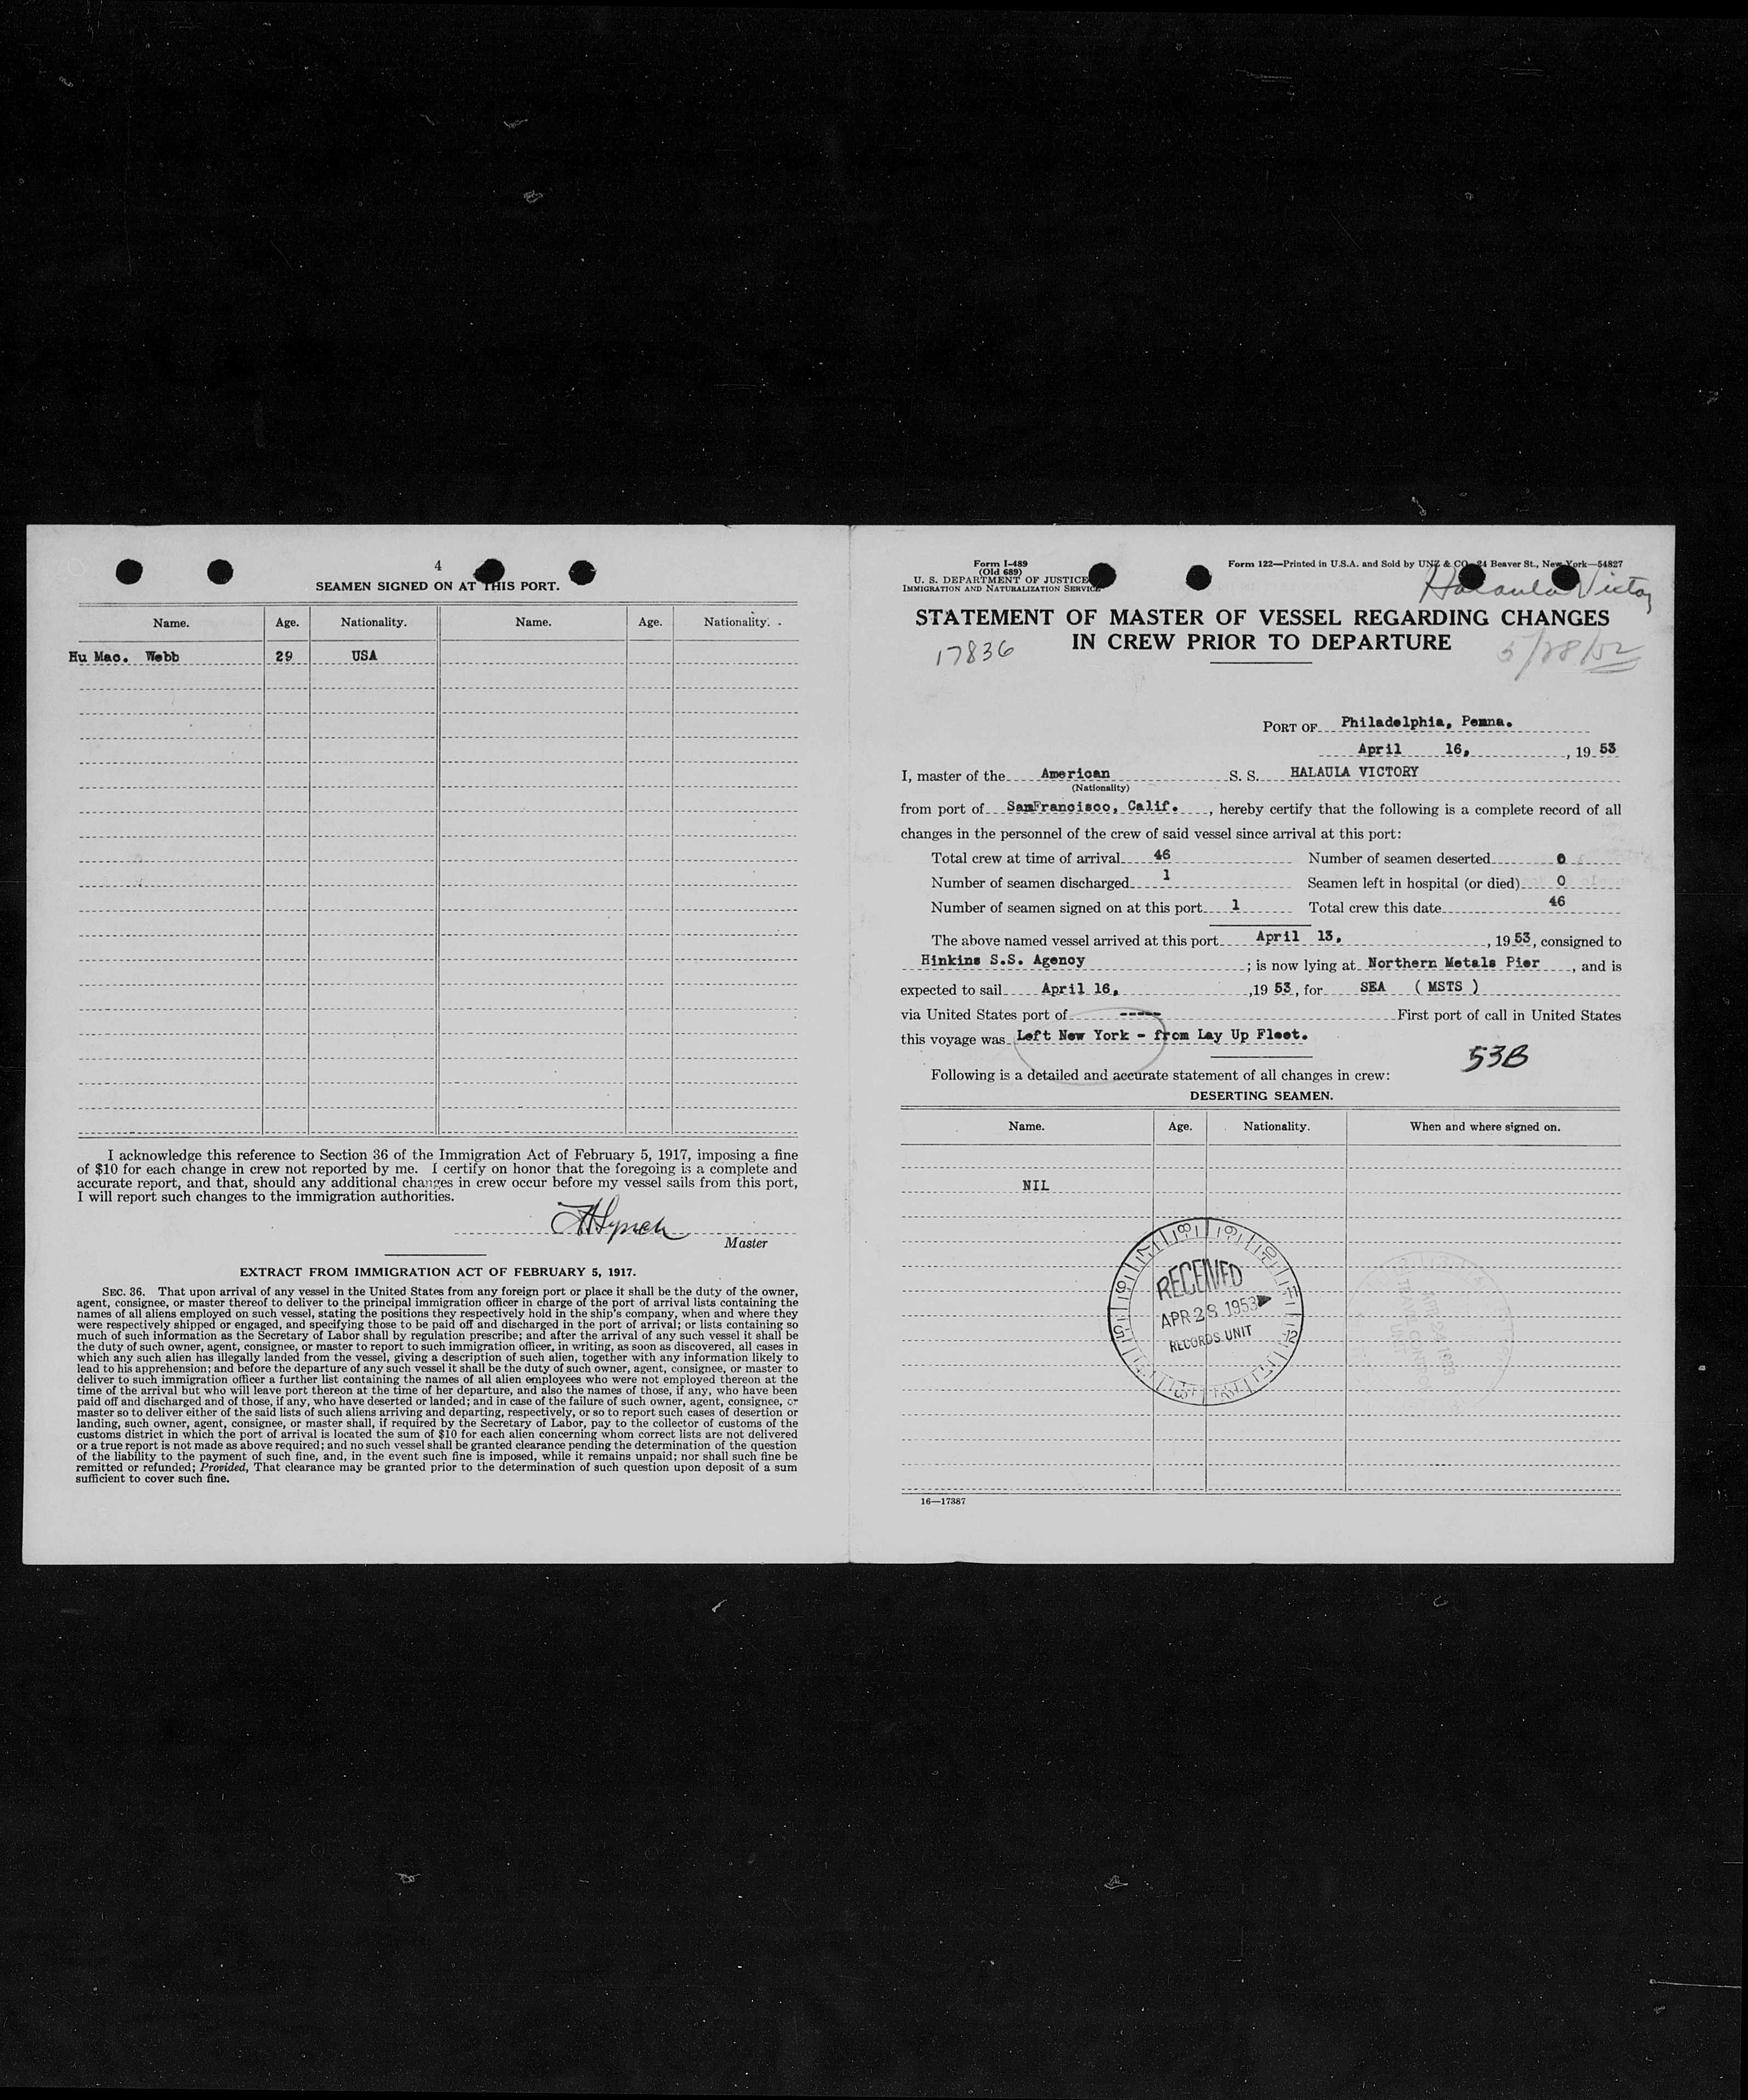 4
SEAMEN SIGNED ON AT THIS PORT.
Name. Age. Nationality. Name. Age. Nationality.
Hu Mac. Webb 29 USA
I acknowledge this reference to Section 36 of the Immigration Act of February 5, 1917, imposing a fine
of $10 for each change in crew not reported by me. I certify on honor that the foregoing is a complete and
accurate report, and that, should any additional changes in crew occur before my vessel sails from this port,
I will report such changes to the immigration authorities.
Lynch
Master
EXTRACT FROM IMMIGRATION ACT OF FEBRUARY 5, 1917.
SEC. 36. That upon arrival of any vessel in the United States from any foreign port or place it shall be the duty of the owner,
agent, consignee, or master thereof to deliver to the principal immigration officer in charge of the port of arrival lists containing the
names of all aliens employed on such vessel, stating the positions they respectively hold in the ship's company, when and where they
were respectively shipped or engaged, and specifying those to be paid off and discharged in the port of arrival; or lists containing so
much of such information as the Secretary of Labor shall by regulation prescribe; and after the arrival of any such vessel it shall be
the duty of such owner, agent, consignee, or master to report to such immigration officer, in writing, as soon as discovered, all cases in
which any such alien has illegally landed from the vessel, giving a description of such alien, together with any information likely to
lead to his apprehension; and before the departure of any such vessel it shall be the duty of such owner, agent, consignee, or master to
deliver to such immigration officer a further list containing the names of all alien employees who were not employed thereon at the
time of the arrival but who will leave port thereon at the time of her departure, and also the names of those, if any, who have been
paid off and discharged and of those, if any, who have deserted or landed; and in case of the failure of such owner, agent, consignee, or
master so to deliver either of the said lists of such aliens arriving and departing, respectively, or so to report such cases of desertion or
landing, such owner, agent, consignee, or master shall, if required by the Secretary of Labor, pay to the collector of customs of the
customs district in which the port of arrival is located the sum of $10 for each alien concerning whom correct lists are not delivered
or a true report is not made as above required; and no such vessel shall be granted clearance pending the determination of the question
of the liability to the payment of such fine, and, in the event such fine is imposed, while it remains unpaid; nor shall such fine be
remitted or refunded; Provided, That clearance may be granted prior to the determination of such question upon deposit of a sum
sufficient to cover such fine.
Form I-489
(Old 689)
U. S. DEPARTMENT OF JUSTICE
IMMIGRATION AND NATURALIZATION SERVICE
Form 122—Printed in U.S.A. and Sold by UNZ & CO., 24 Beaver St., New York—54827
Halaula Victory
STATEMENT OF MASTER OF VESSEL REGARDING CHANGES
IN CREW PRIOR TO DEPARTURE
17836
5/28/52
PORT OF Philadelphia, Penna.
April 16, , 19 53
I, master of the American S. S. HALAULA VICTORY
(Nationality)
from port of SanFrancisco, Calif. , hereby certify that the following is a complete record of all
changes in the personnel of the crew of said vessel since arrival at this port:
Total crew at time of arrival 46 Number of seamen deserted 0
Number of seamen discharged 1 Seamen left in hospital (or died) 0
Number of seamen signed on at this port 1 Total crew this date 46
The above named vessel arrived at this port April 13, , 19 53, consigned to
Hinkins S.S. Agency ; is now lying at Northern Metals Pier , and is
expected to sail April 16, ,19 53, for SEA ( MSTS )
via United States port of ----- First port of call in United States
this voyage was Left New York - from Lay Up Fleet.
53B
Following is a detailed and accurate statement of all changes in crew:
DESERTING SEAMEN.
Name. Age. Nationality. When and where signed on.
NIL
RECEIVED
APR 28 1953
RECORDS UNIT
16—17387